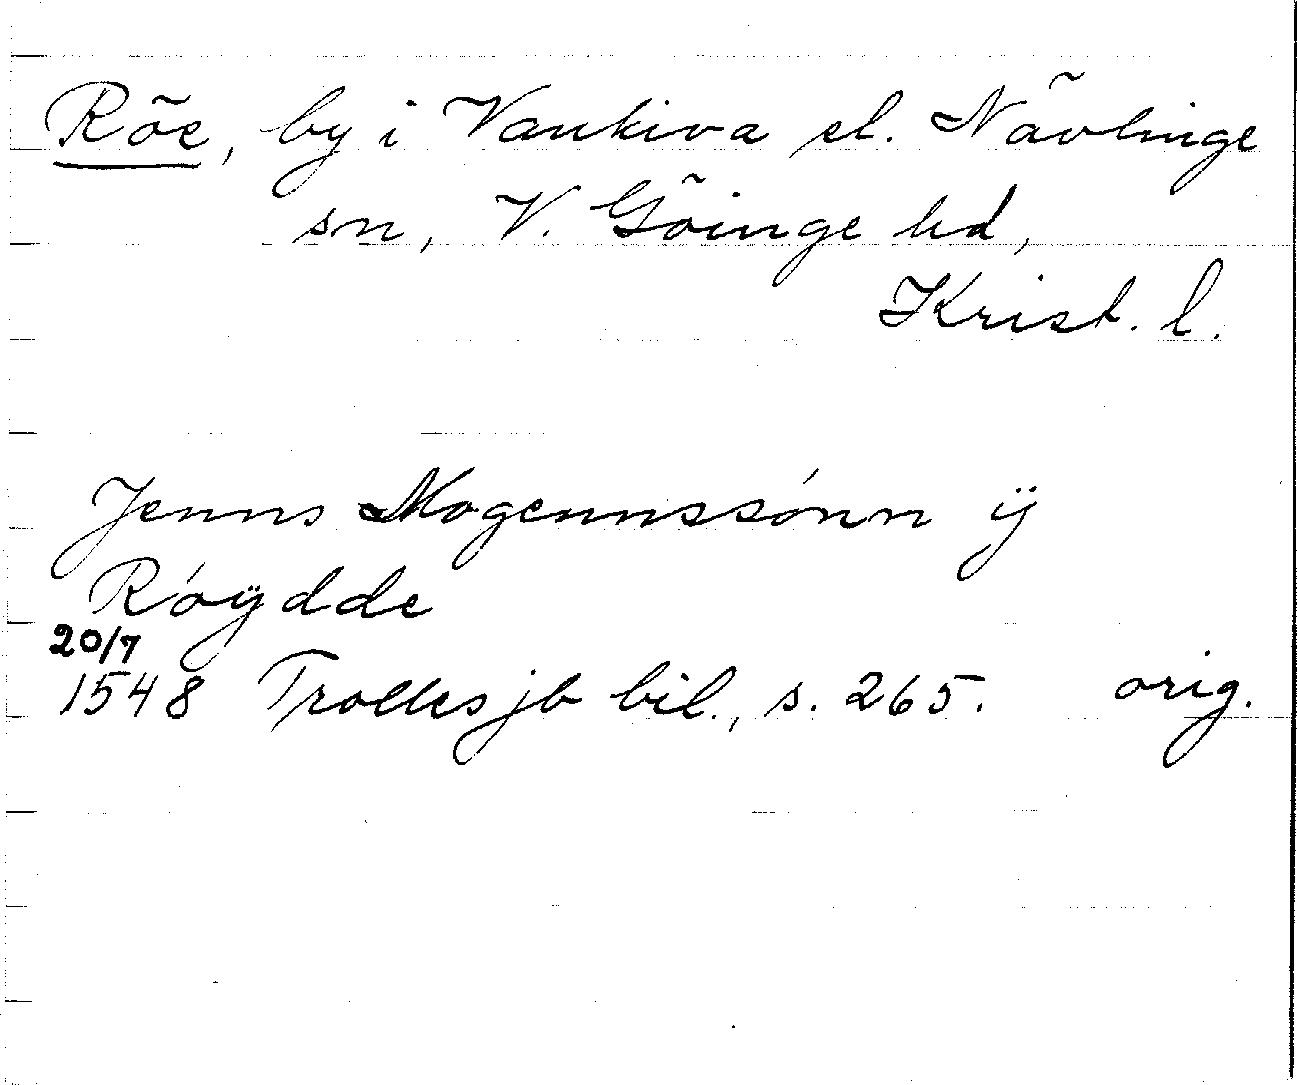 Röe, by i Vankiva el. Nävlinge
sn, V. Göinge hd,
Krist. l.
Jenns Mogennssónn ÿ
Róÿdde
20/7
1548 Trolles jb bil., s. 265. orig.